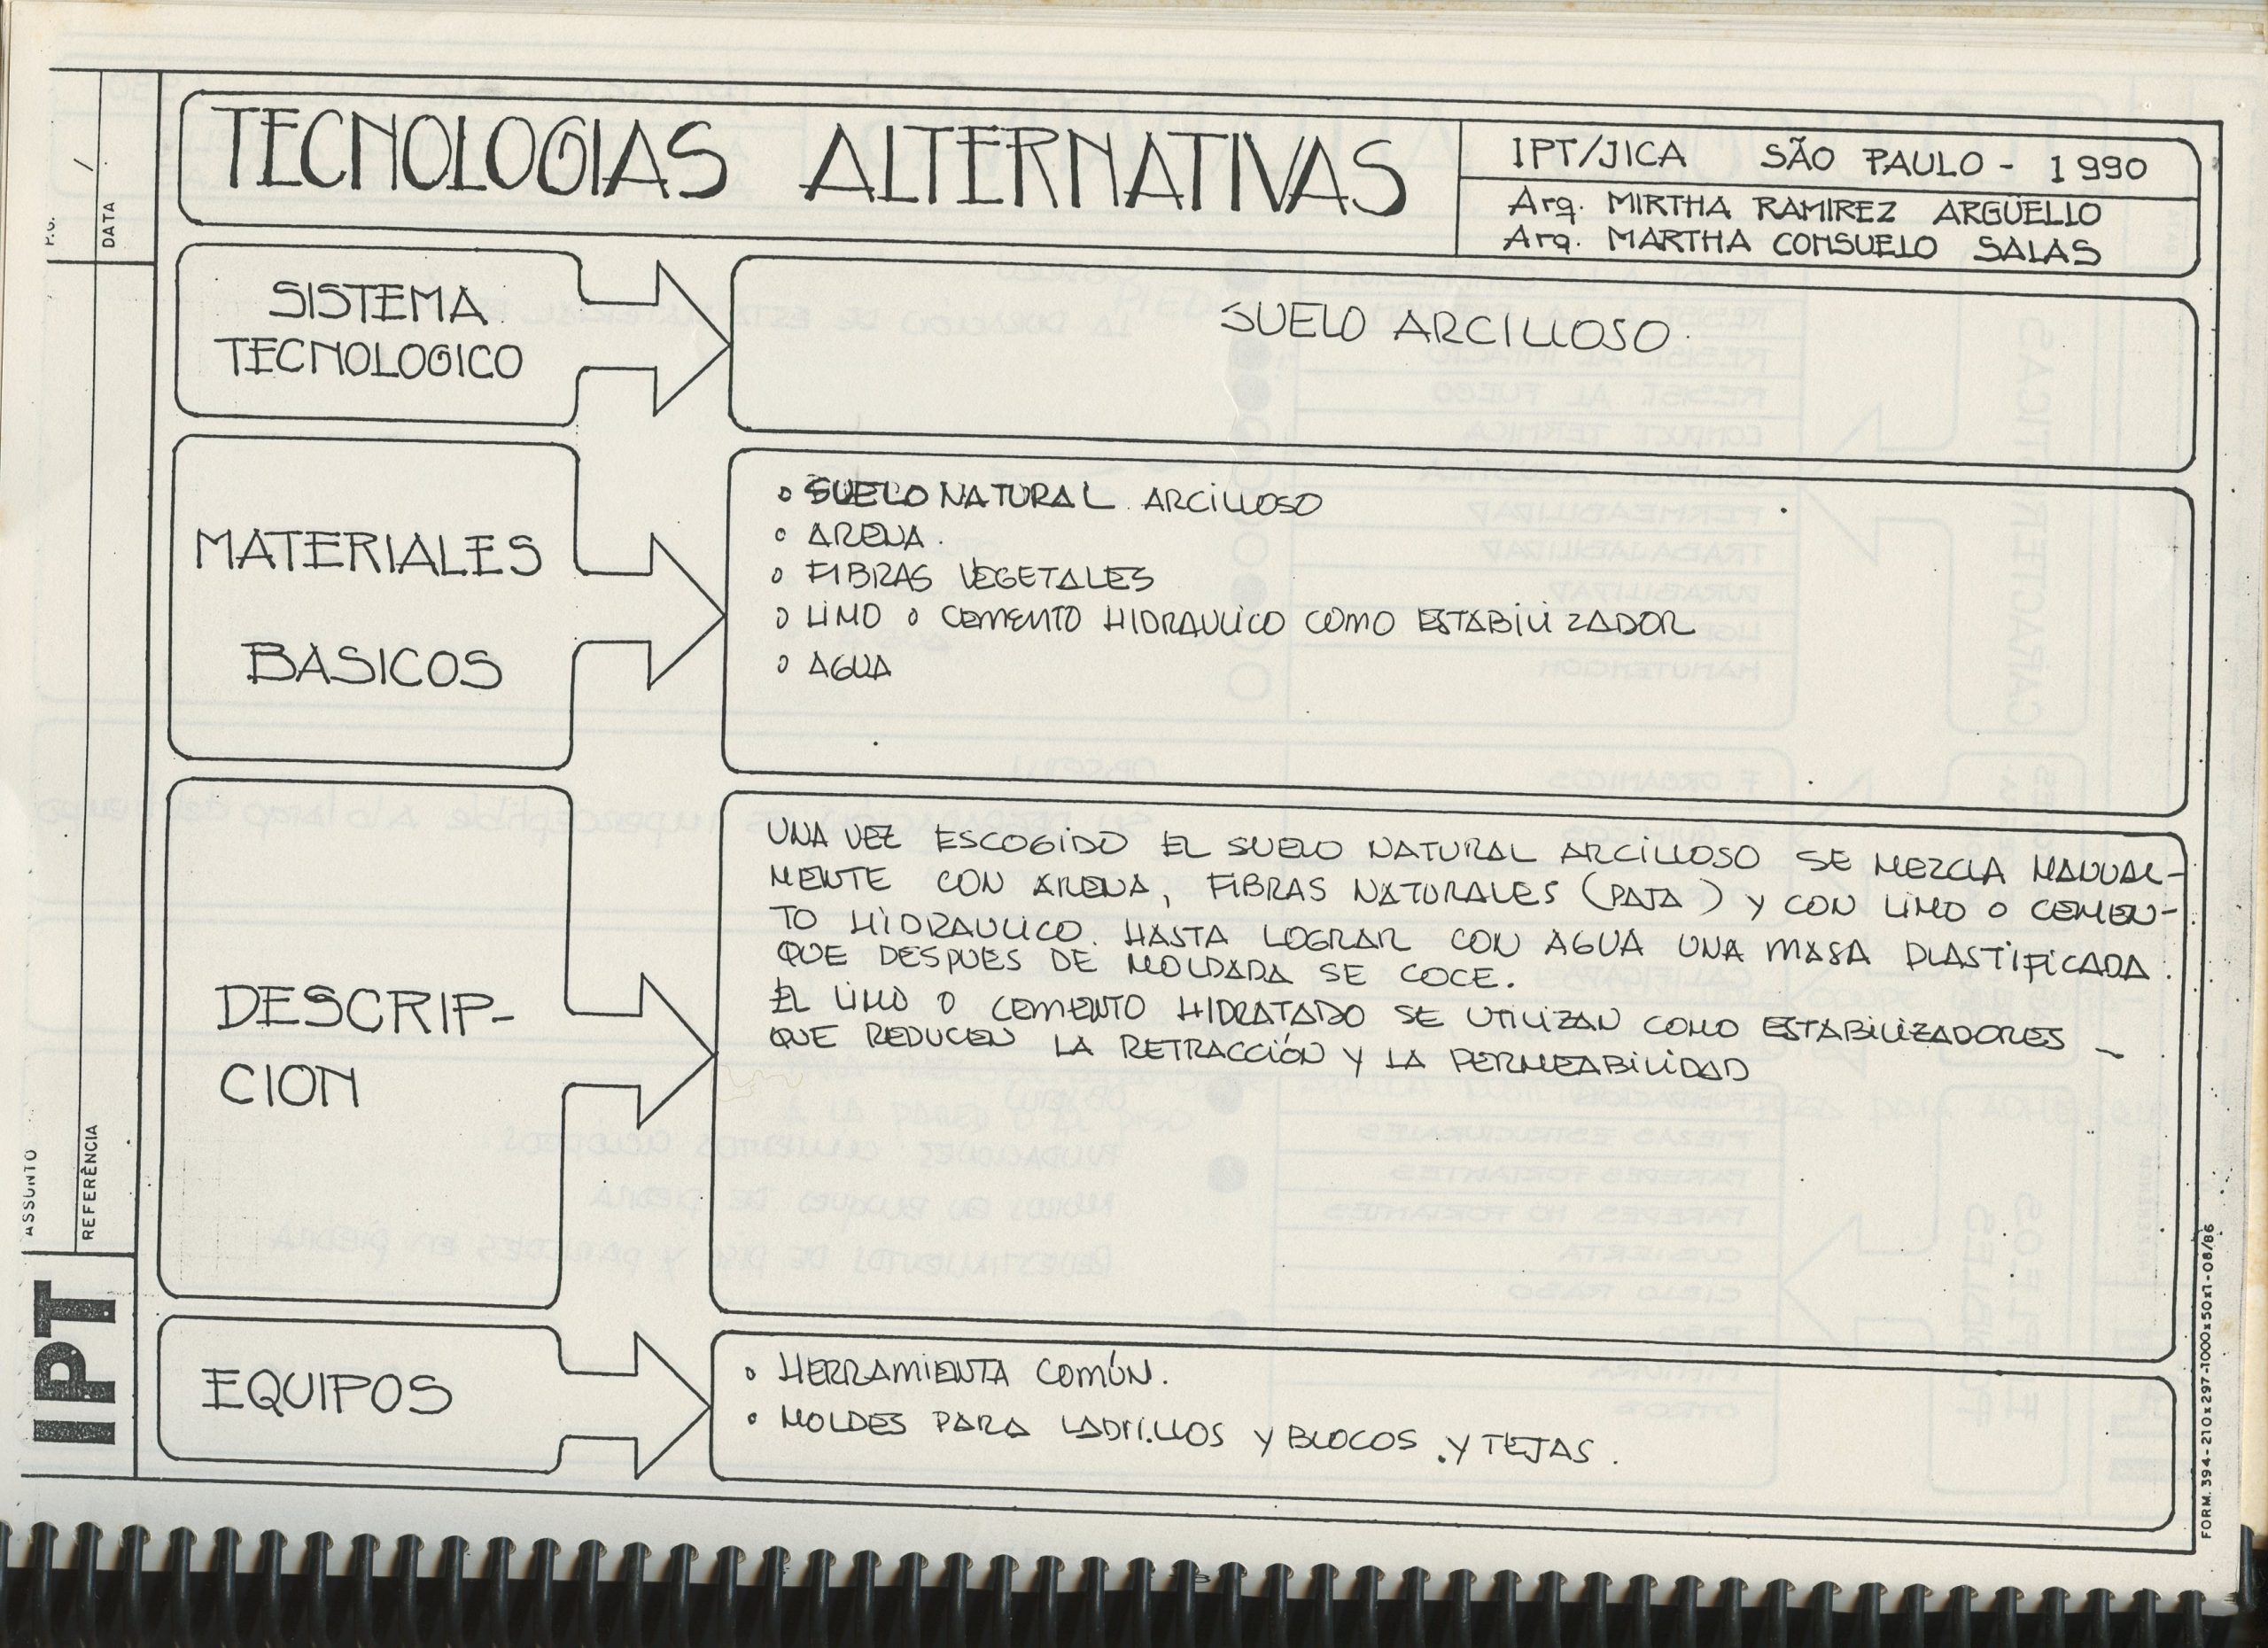 TECNOLOGIAS ALTERNATIVAS
IPT/JICA SÃO PAULO - 1990
Arq. MIRTHA RAMIREZ ARGÜELLO
Arq. MARTHA CONSUELO SALAS
SISTEMA
TECNOLOGICO
SUELO ARCILLOSO.
MATERIALES
BASICOS
o SUELO NATURAL ARCILLOSO
o ARENA.
o FIBRAS VEGETALES
o LIMO o CEMENTO HIDRAULICO COMO ESTABILIZADOR
o AGUA
DESCRIP-
CION
UNA VEZ ESCOGIDO EL SUELO NATURAL ARCILLOSO SE MEZCLA MANUAL-
MENTE CON ARENA, FIBRAS NATURALES (PAJA) Y CON LIMO O CEMEN-
TO HIDRAULICO. HASTA LOGRAR CON AGUA UNA MASA PLASTIFICADA.
QUE DESPUES DE MOLDADA SE COCE.
EL LIMO O CEMENTO HIDRATADO SE UTILIZAN COMO ESTABILIZADORES -
QUE REDUCEN LA RETRACCIÓN Y LA PERMEABILIDAD
EQUIPOS
o HERRAMIENTA COMÚN.
o MOLDES PARA LADRILLOS Y BLOCOS .Y TEJAS.
DATA
/
ASSUNTO
REFERÊNCIA
IPT
FORM. 394-210x297-1000x50x1-08/86